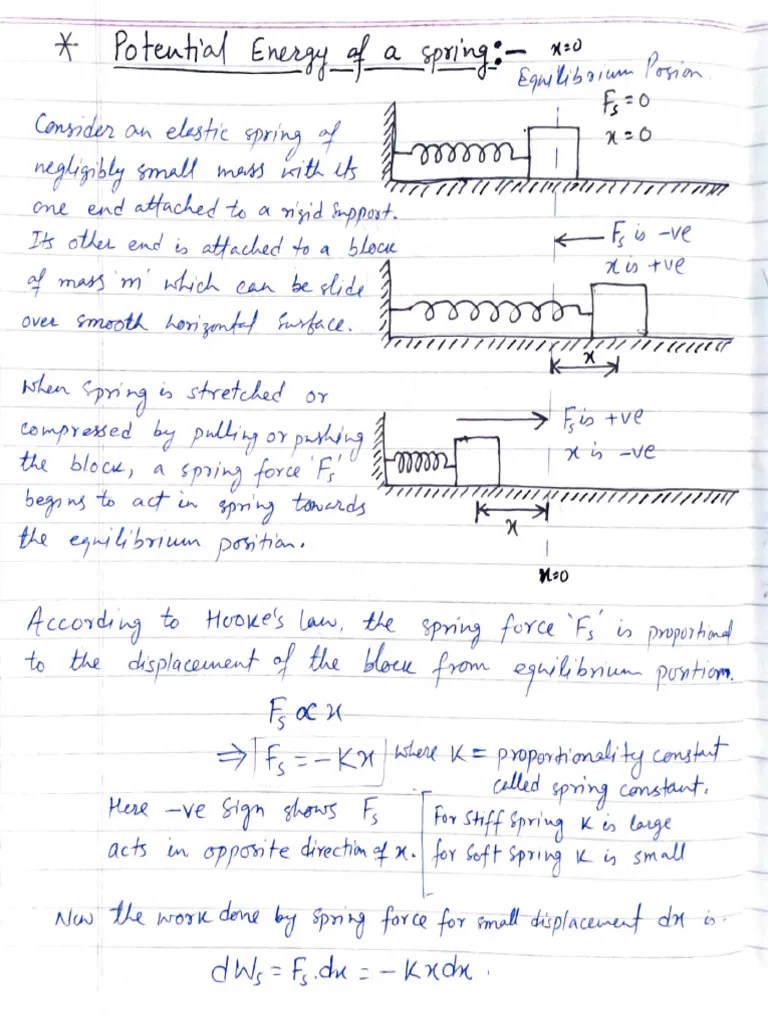 * Potential Energy of a spring:- x=0
Equilibrium Posion
Fs = 0
x = 0
Consider an elastic spring of
negligibly small mass with its
one end attached to a rigid support.
Its other end is attached to a block
of mass 'm' which can be slide
over smooth horizontal surface.
Fs is -ve
x is +ve
x
When spring is stretched or
compressed by pulling or pushing
the block, a spring force 'Fs'
begins to act in spring towards
the equilibrium position.
Fs is +ve
x is -ve
x
x=0
According to Hooke's law, the spring force 'Fs' is proportional
to the displacement of the block from equilibrium position.
Fs ∝ x
⇒ Fs = -Kx where K = proportionality constant
called spring constant.
Here -ve sign shows Fs
acts in opposite direction of x.
For stiff spring K is large
for soft spring K is small
Now the work done by spring force for small displacement dx is.
dWs = Fs.dx = -Kxdx.